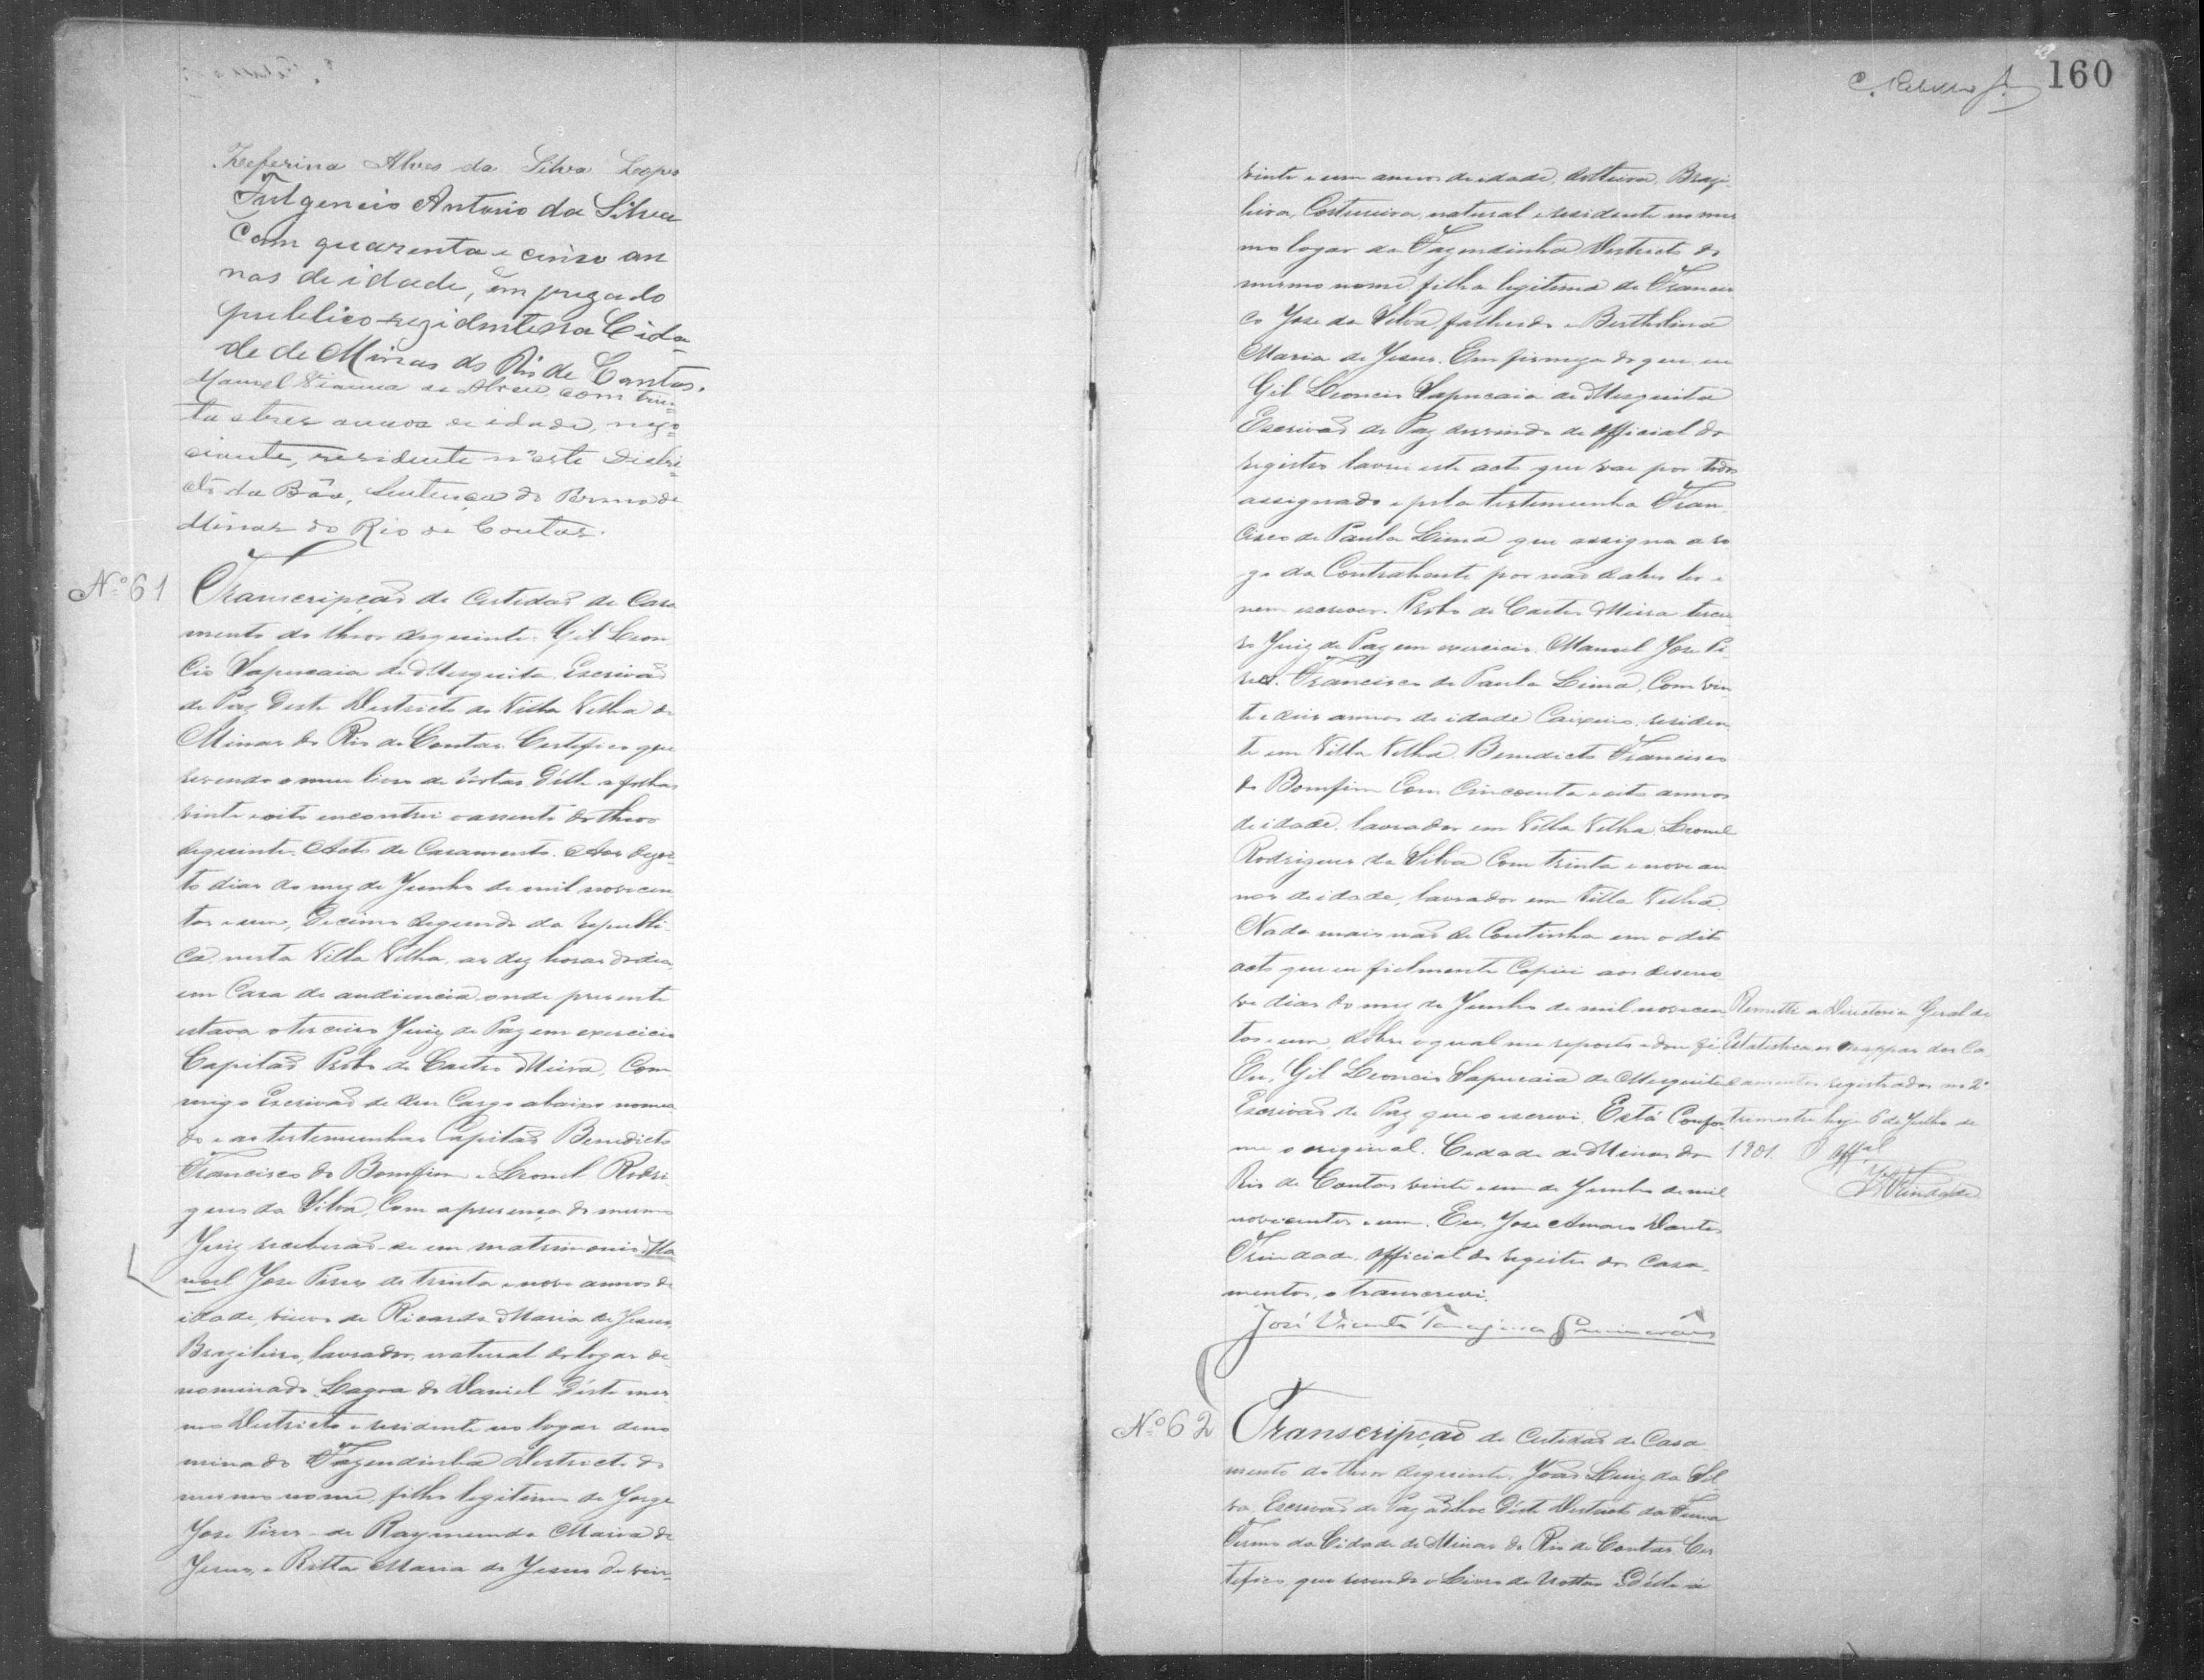 Zeferina Alves da Silva Lopes
Fulgencio Antonio da Silva
Com quarenta e cinco an
nos de idade, em pregado
publico rezidente na Cida-
de de Minas do Rio de Contas.
Manoel Vianna de Abreu, com trin-
ta e tres annos de idade, nego-
ciante, residente n'este Distri-
cto da Bôa, Sentença do Termo de
Minas do Rio de Contas.
Nº 61
Transcripção de Certidão de Casa
mento do theor seguinte. Gil Leon
cio Sapucaia de Mesquita, Escrivão
de Paz deste Districto de Villa Velha de
Minas do Rio de Contas. Certifico que
revendo o meu livro de notas d'elle a folhas
vinte e oito encontrei o assento do theor
seguinte. Acto de Casamento. Aos dezoi-
to dias do mez de Junho de mil novecen
tos e um, decimo segundo da Republi-
ca, nesta Villa Velha, as dez horas do dia,
em Casa de audiencia onde presente
estava o terceiro Juiz de Paz em exercicio
Capitão Probo de Castro Meira, Com
migo Escrivão de seu Cargo abaixo nomea
do e as testemunhas Capitão Benedicto
Francisco do Bomfim e Leonel Rodri-
gues da Silva, Com a presença do mesmo
Juiz receberão-se em matrimonio Ma
noel Jose Pires de trinta e nove annos de
idade, viuvo de Ricarda Maria de Jesus,
Brazileiro, lavrador, natural do logar de-
nominado Lagoa do Daniel d'este mes
mo Districto e residente no logar deno
minado Fazendinha Districto do
mesmo nome, filho legitimo de Jorge
Jose Pires e de Raymunda Maria de
Jesus, e Ritta Maria de Jesus de vin-
160
vinte e um annos de idade, solteira, Brazi-
leira, Costureira, natural e residente no mes
mo logar da Fazendinha Districto do
mesmo nome, filha legitima de Francis
co Jose da Silva, fallecido e Bertholina
Maria de Jesus. Em firmeza do que eu
Gil Leoncio Sapucaia de Mesquita
Escrivão de Paz servindo de Official do
registro lavrei este acto que vae por todos
assignado e pela testemunha Fran-
cisco de Paula Lima que assigna a ro
go da Contrahente por não saber ler e
nem escrever. Probo de Castro Meira tercei
ro Juiz de Paz em exercicio. Manoel Jose Pi-
res. Francisco de Paula Lima, Com vin
te e dois annos de idade Caixeiro, residen
te em Villa Velha. Benedicto Francisco
do Bomfim Com Cincoenta e oito annos
de idade, lavrador em Villa Velha, Leonel
Rodrigues da Silva Com trinta e nove an
nos de idade, lavrador em Villa Velha.
Nada mais não se Continha em o dito
acto que eu fielmente Copiei aos deseno
ve dias do mez de Junho de mil novecen
tos e um, sobre o qual me reporto e dou fé.
Eu, Gil Leoncio Sapucaia de Mesquita
Escrivão de Paz que o escrevi. Está Confor
me o original. Cidade de Minas do
Rio de Contas vinte e um de Junho de mil
novecentos e um. Eu, Jose Amaro Dantes
Trindade, Official do registro dos Casa-
mentos, o transcrevi.
José Vicente Tanajura Guimarães
Remetti a Directoria Geral de
Estatistica os mappas dos Ca
samentos registrados no 2º
trimestre hoje 6 de Julho de
1901. O Offal
Trindade
Nº 62
Transcripção de Certidão de Casa
mento do theor seguinte. João Luiz da Sil
va, Escrivão de Paz adhoc d'este Districto da Furna
Termo da Cidade de Minas do Rio de Contas. Cer
tifico que revendo o Livro de Nottas d'este a